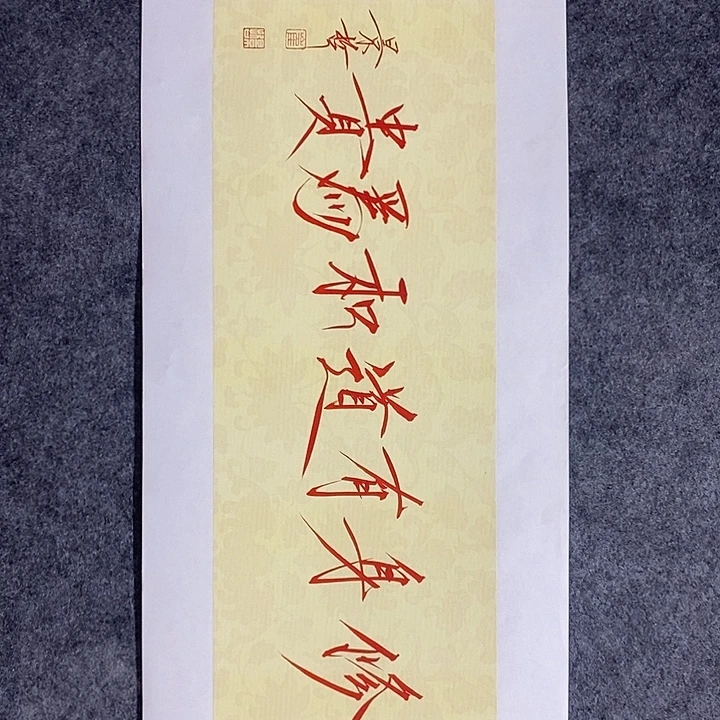 修身有道和為貴